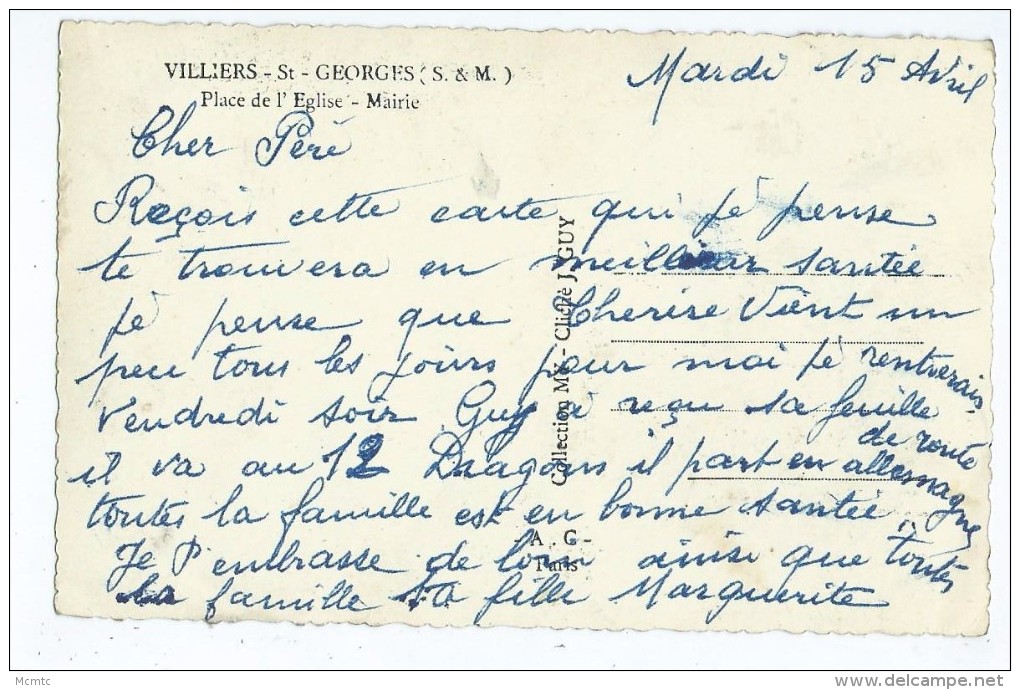 VILLIERS - St - GEORGES ( S. & M. )
Place de l' Eglise - Mairie
Mardi 15 Avril
Cher Péré
Reçois cette carte qui jé pense
te trouvera en meilleur santée
jé pense que Cherise Vient un
peu tous les jours pour moi jé rentrerais
Vendredi soir Guy a reçu sa feuille
de route
il va au 12 Dragons il part en allemagne
toutes la famille est en bonne santée
Je t'embrasse de loin ainsi que toutes
la famille ta fille Marguerite
Collection MY - Cliché J. GUY
- A . C -
Paris
Mcmtc
delcampe.net